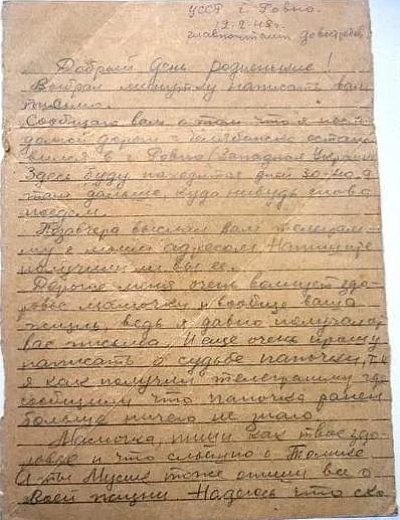 УССР г. Ровно.
19.2.48г.
главпочтамт до востреб
Добрый день родненькие!
Выбрал минутку написать вам
письмо.
Сообщаю вам о том что я после
дороги с Челябинска остано
вился в г. Ровно /Западная Украин
Здесь буду находится дней 30-40, а
там дальше, куда нибудь снова
поедем.
Позавчера выслал вам телеграм-
му с моим адресом. Напишите
получили ли вы ее.
Дорогие меня очень волнует здо-
ровье мамочки и вообще ваша
жизнь, ведь я давно получал от
вас письма. И еще очень прошу
написать о судьбе папочки, т.к
я как получил телеграмму где
сообщили что папочка ранен
больше ничего не знаю.
Мамочка, пиши как твое здо-
ровье и что слышно о Томике
А ты Мусик тоже опиши все о
своей жизни. Надеюсь что ско